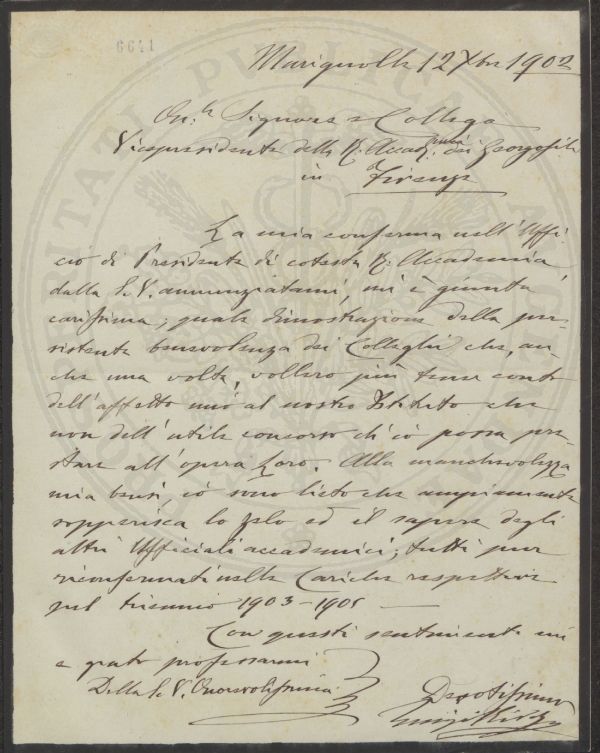 6641
Marignolle 12 Xbre 1902
On.le Signore e Collega
Vicepresidente della R. Accademia dei Georgofili
in Firenze
La mia conferma nell'Uffi-
cio di Presidente di cotesta R. Accademia
dalla S. V. annunziatami, mi è giunta
carissima; quale dimostrazione della per-
sistente benevolenza dei Colleghi che, an-
che una volta, vollero più tener conto
dell'affetto mio al nostro Istituto che
non dell'utile concorso ch'io possa pre-
stare all'opera Loro. Alla manchevolezza
mia bensì, io sono lieto che ampiamente
sopperisca lo zelo ed il sapere degli
altri Ufficiali accademici; tutti pur
riconfermati nelle Cariche respettive
pel triennio 1903-1905
Con questi sentimenti mi
è grato professarmi
Della S. V. Onorevolissima
Devotissimo
PROSPERITATI PUBLICAE